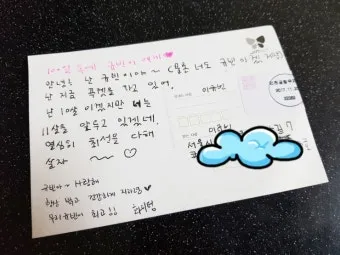 100일 후에 규빈이에게♥
안녕? 난 규빈이야~ (물론 너도 규빈이겠지만)
난 지금 폭포를 가고 있어.
난 10살이겠지만 너는
11살을 앞두고 있겠네.
열심히 최선을 다해
살자 ~~ ♡
규빈아~ 사랑해
항상 밝고 건강하게 자라렴♥
우리규빈이 최고!!
이규빈
이규빈
서울시
길 7